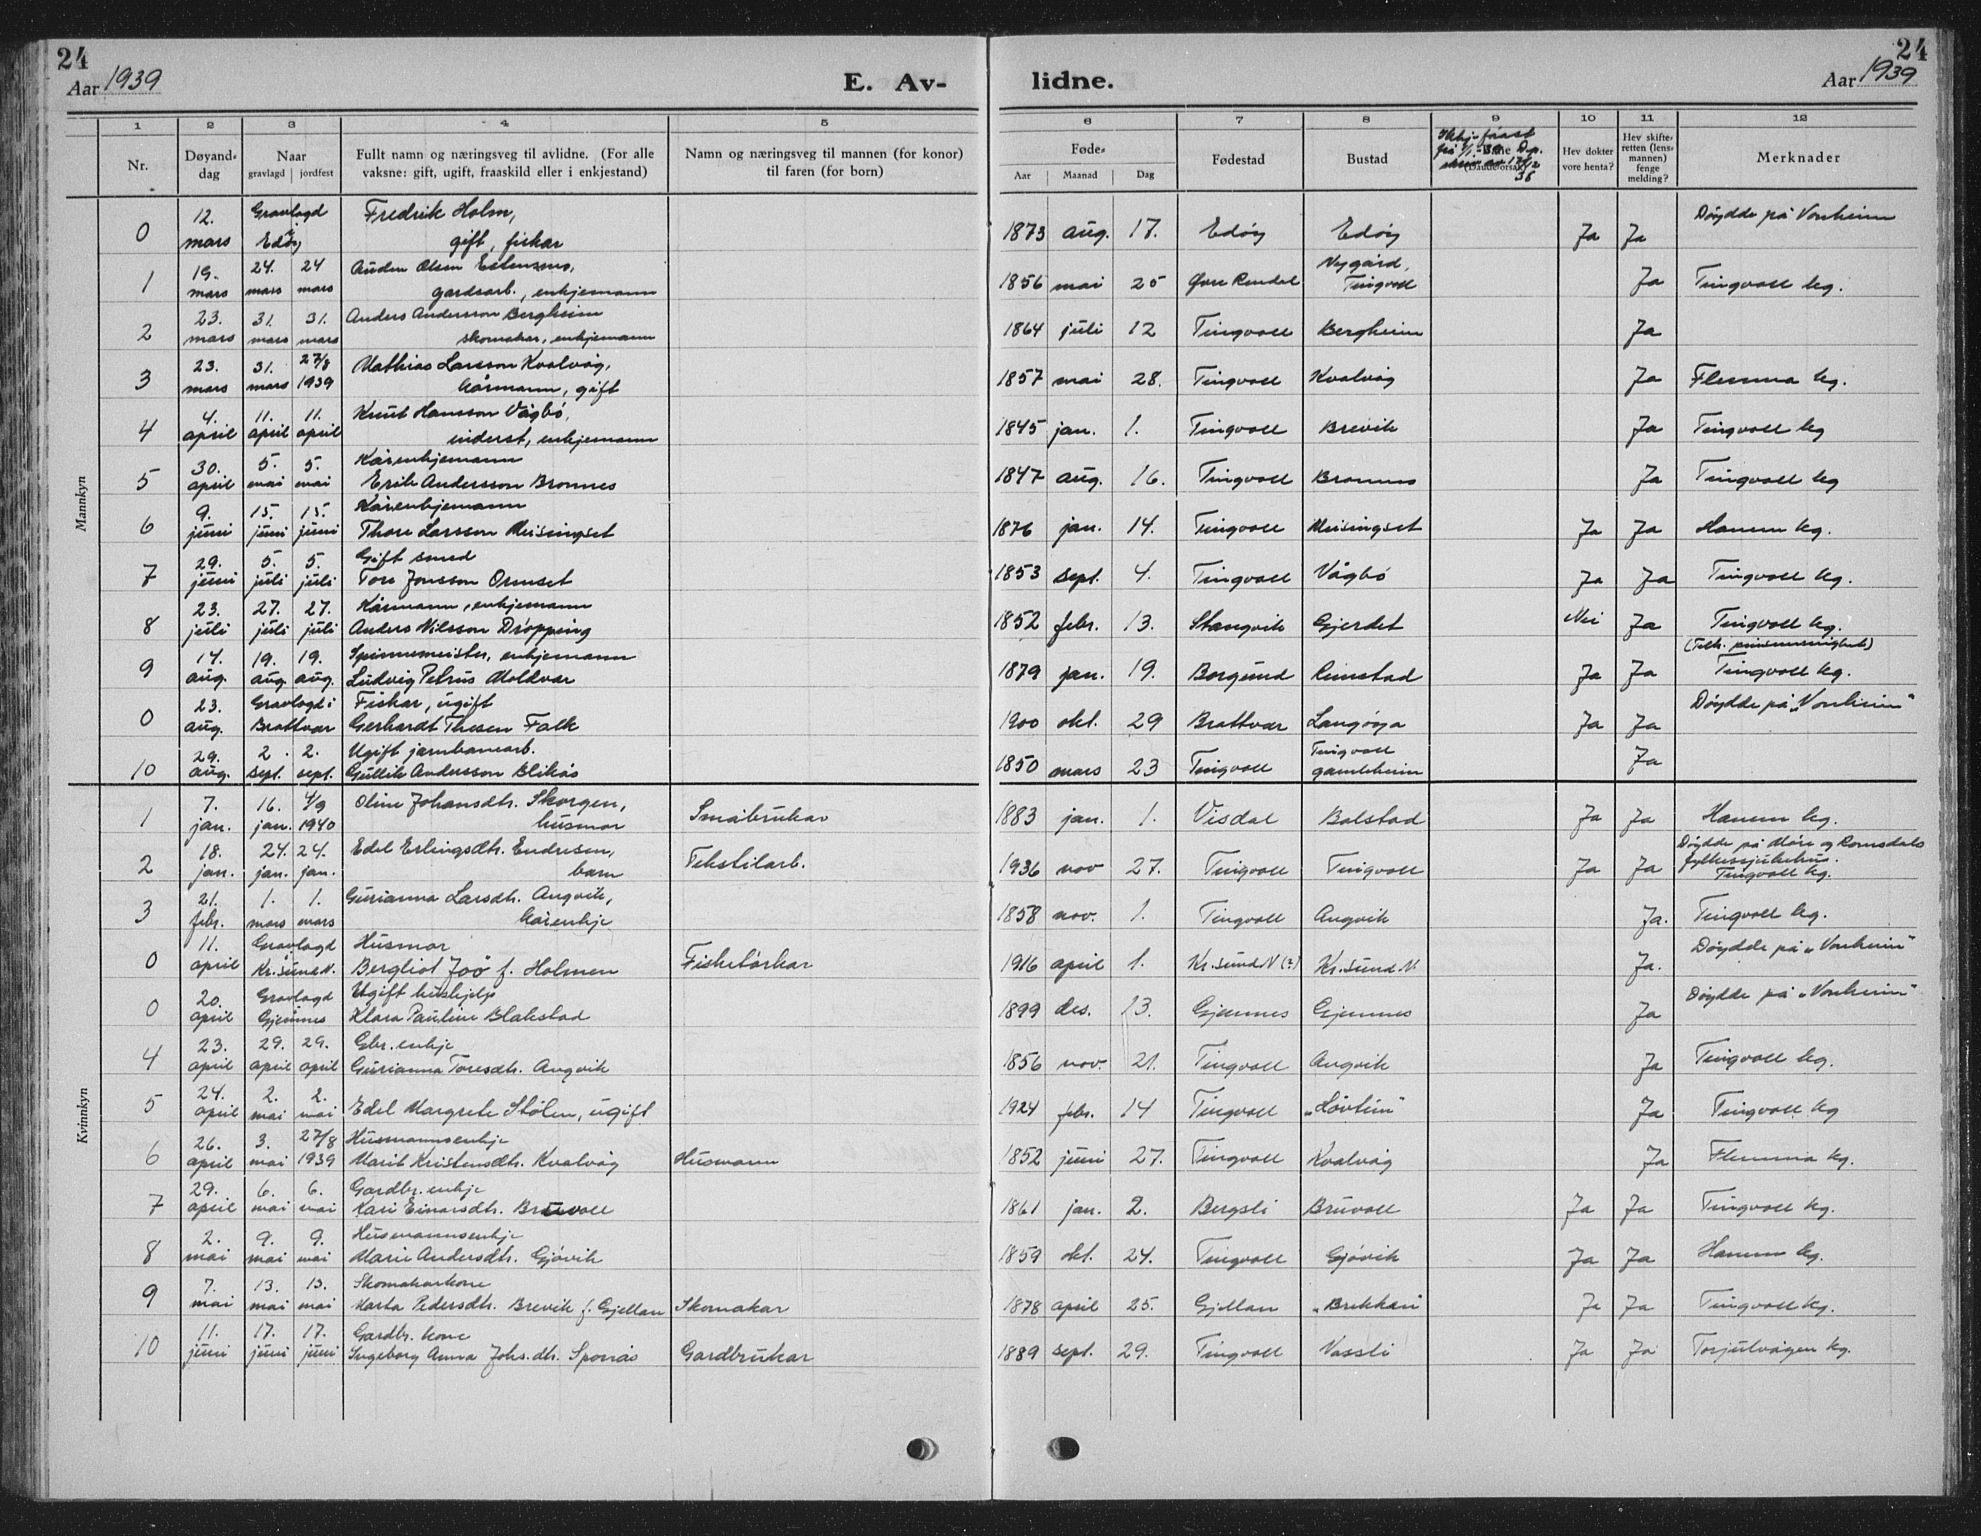 24
Aar 1939
E. Av-
lidne.
24
Aar 1939
1 2 3 4 5 6 7 8 9 10 11 12
Nr.
Døyand-dag
Naar gravlagd jordfest
Fullt namn og næringsveg til avlidne. (For alle vaksne: gift, ugift, fraaskild eller i enkjestand)
Namn og næringsveg til mannen (for konor) til faren (for born)
Føde- Aar Maanad Dag
Fødestad
Bustad
(Daudeorsak)
Hev dokter vore henta?
Hev skifteretten (lensmannen) fenge melding?
Merknader
Mannkyn
0 12. mars Gravlagd Edøy Fredrik Holm, gift, fiskar 1873 aug. 17. Edøy Edøy Ja Ja Døydde på Vonheim
1 19. mars 24. mars 24 mars Auden Olsen gardsarb., enkjemann 1856 mai 25 Øvre Rendal Nygård, Tingvoll Ja Tingvoll kg.
2 23. mars 31. mars 31. mars Anders Andersson Bergheim skomakar, enkjemann 1864 juli 12 Tingvoll Bergheim Ja
3 23. mars 31. mars 27/8 1939 Mathias Larsson Kvalvåg, kårmann, gift 1857 mai 28. Tingvoll Kvalvåg Ja Flemma kg.
4 4. april 11. april 11. april Knut Hansson Vågbø, inderst, enkjemann 1845 jan. 1. Tingvoll Brevik Ja Tingvoll kg
5 30. april 5. mai 5. mai Kårenkjemann Erik Andersson Bronnes 1847 aug. 16. Tingvoll Bronnes Ja Tingvoll kg
6 9. juni 15. juni 15. juni Kårenkjemann Thore Larsson Meisingset 1876 jan. 14. Tingvoll Meisingset Ja Ja Hanem kg.
7 29. juni 5. juli 5. juli Gift smed Tore Jonsson Ormset 1853 sept. 4. Tingvoll Vågbø Ja Ja Tingvoll kg.
8 23. juli 27. juli 27. juli Kårmann, enkjemann Anders Nilsson Drøpping 1852 febr. 13. Stangvik Gjerdet Nei Ja Tingvoll kg.
9 14. aug. 19. aug. 19. aug. Spinnemeister, enkjemann Ludvig Petrus Moldvær 1879 jan. 19. Borgund Rimstad Ja Ja Tingvoll kg.
0 23. aug. Gravlagd i Brattvær Fiskar, ugift Gerhardt Thesen Falk 1900 okt. 29 Brattvær Langøya Ja Ja Døydde på "Vonheim"
10 29. aug. 2. sept. 2. sept. Ugift jarnbanearb. Gullik Andersson Blikås 1850 mars 23 Tingvoll Tingvoll gamleheim Ja
Kvinnkyn
1 7. jan. 16. jan. 4/9 1940 Oline Johansdtr. Skorgen, husmor Småbrukar 1883 jan. 1. Visdal Bolstad Ja Ja Hanem kg.
2 18. jan. 24. jan. 24. jan. Edel Erlingsdtr. Endresen, barn Tekstilarb. 1936 nov 27. Tingvoll Tingvoll Ja Ja Døydde på Møre og Romsdals fylkessjukehus. Tingvoll kg.
3 21. febr. 1. mars 1. mars Gurianna Larsdtr. Angvik, kårenkje 1858 nov. 1. Tingvoll Angvik Ja. Tingvoll kg.
0 11. april Gravlagd Kr.sund N. Husmor Bergliot Joö f. Holmen Fisketørkar 1916 april 1. Kr.sund N (?) Kr.sund N Ja. Døydde på "Vonheim"
0 20. april Gravlagd Gjemnes Ugift hushjelp Klara Pauline Blakstad 1899 des. 13. Gjemnes Gjemnes Ja Døydde på "Vonheim"
4 23. april 29. april 29. april Gbr. enkje Gurianna Toresdtr. Angvik 1856 nov. 21. Tingvoll Angvik Ja Tingvoll kg.
5 24. april 2. mai 2. mai Edel Margrete Stølen, ugift 1924 febr. 14 Tingvoll Ja Tingvoll kg
6 26. april 3. mai 27/8 1939 Husmannsenkje Marit Kristensdtr. Kvalvåg Husmann 1852 juni 27. Tingvoll Kvalvåg Ja Flemma kg.
7 29. april 6. mai 6. mai Gardbr. enkje Kari Einarsdtr. Bruvoll 1861 jan. 2. Bergsli Bruvoll Ja Ja Tingvoll kg.
8 2. mai 9. mai 9. mai Husmannsenkje Marie Andersdtr. Gjøvik 1859 okt. 24. Tingvoll Gjøvik Ja Ja Hanem kg.
9 7. mai 13. mai 13. mai Skomakarkone Marta Pedersdtr. Brevik f. Gjellan Skomakar 1878 april 25. Gjellan "Brekkan" Ja Ja Tingvoll kg.
10 11. juni 17. juni 17. juni Gardbr. kone Ingeborg Anna Johs.dtr. Sponås Gardbrukar 1889 sept. 29. Tingvoll Vassli Ja Ja Torjulvågen kg.